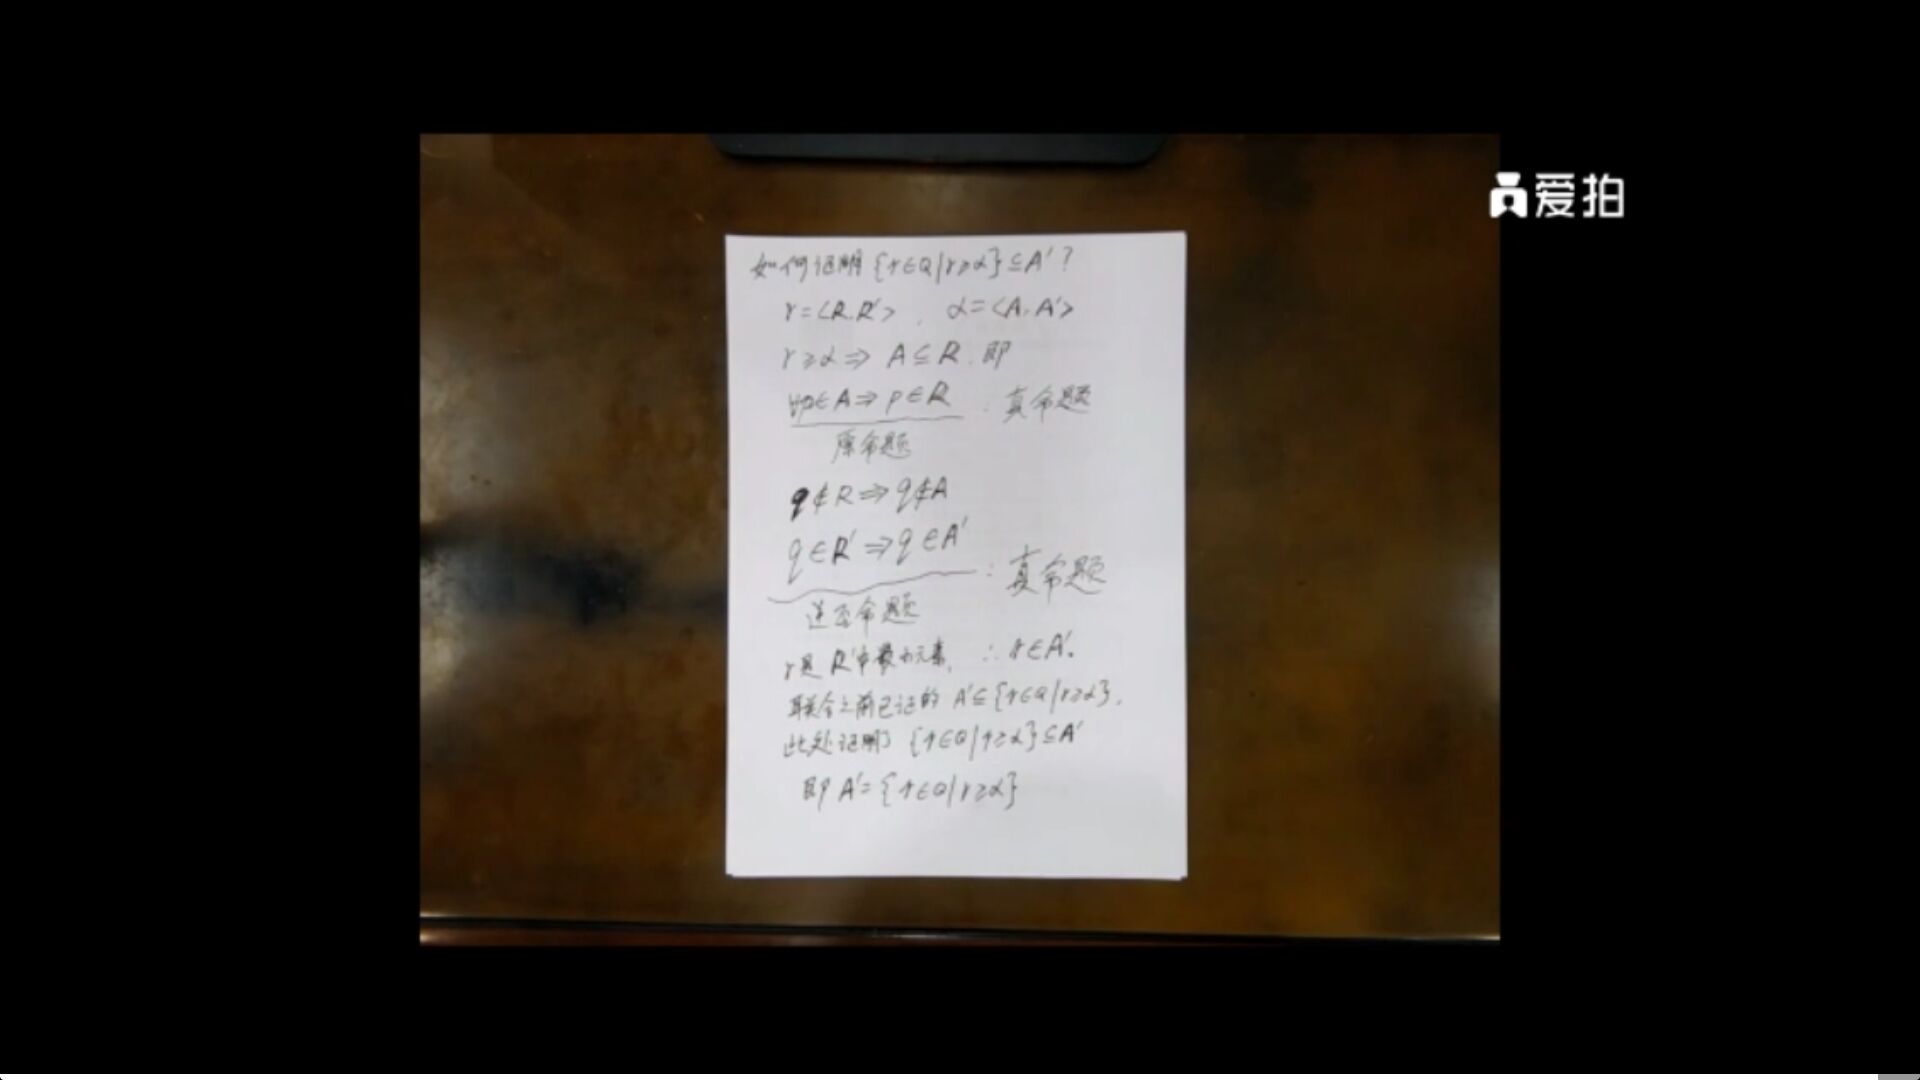 爱拍
如何证明{r∈Q|r≥α}⊆A'?
r=<R,R'>, α=<A,A'>
r≥α⇒A⊆R.即
∀p∈A⇒p∈R:真命题
原命题
q∉R⇒q∉A
q∈R'⇒q∈A':真命题
逆否命题
r是R'中最小元素,∴r∈A'.
联合之前已证的A'⊆{r∈Q|r≥α},
此处证明了{r∈Q|r≥α}⊆A'
即A'={r∈Q|r≥α}